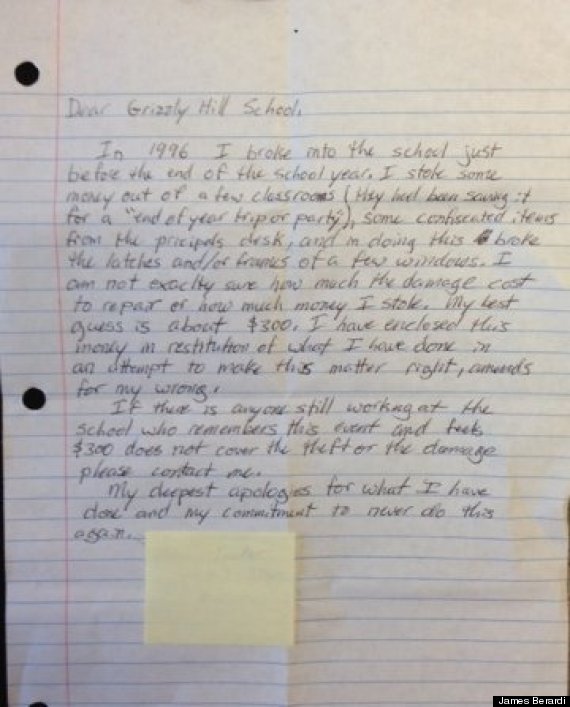 Dear Grizzly Hill School,
In 1996 I broke into the school just
before the end of the school year. I stole some
money out of a few classrooms (they had been saving it
for a "end of year trip or party"), some confiscated items
from the pricipals desk, and in doing this broke
the latches and/or frames of a few windows. I
am not exactly sure how much the damage cost
to repair or how much money I stole. My best
guess is about $300. I have enclosed this
money in restitution of what I have done in
an attempt to make this matter right, amends
for my wrong.
If there is anyone still working at the
school who remembers this event and feels
$300 does not cover the theft or the damage
please contact me.
My deepest apologies for what I have
done and my commitment to never do this
again.
James Berardi